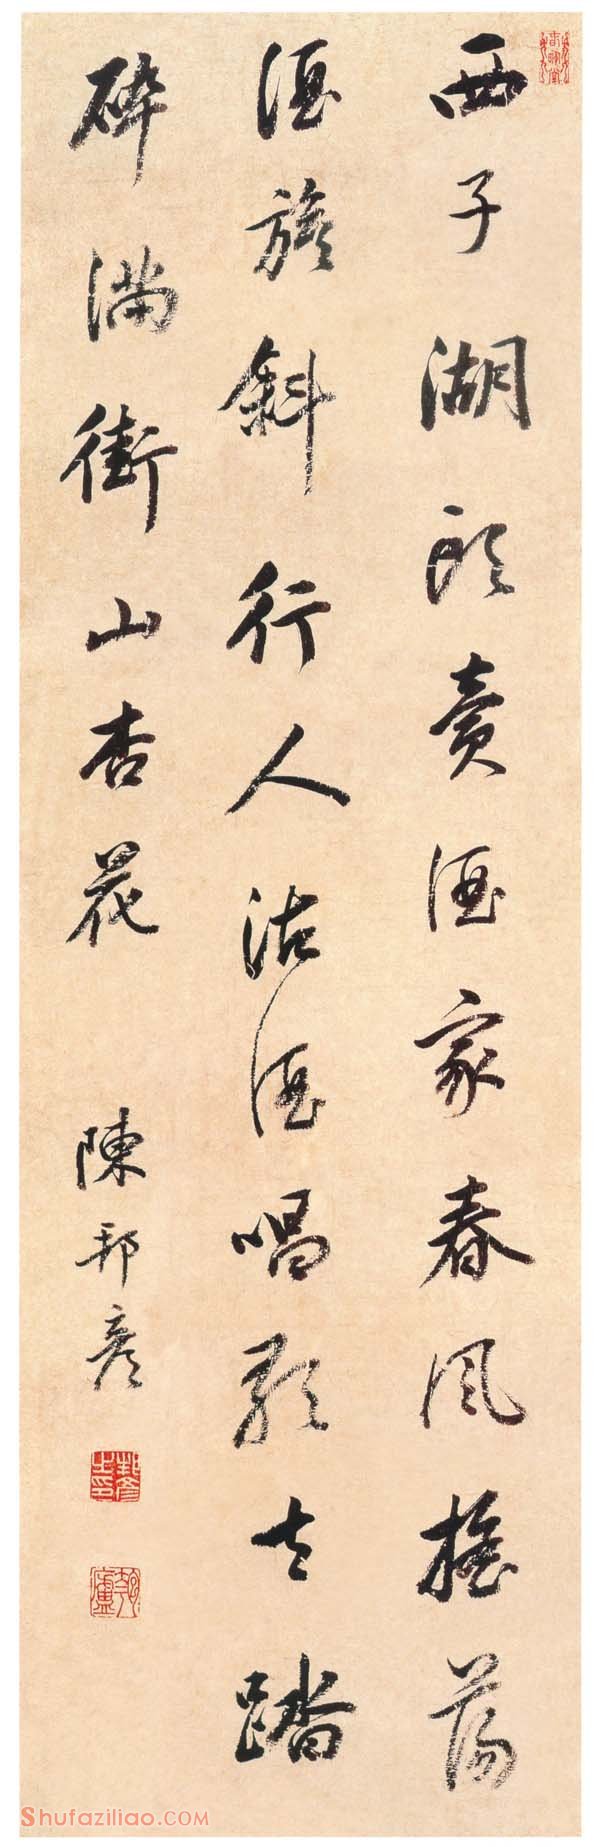 西子湖頭賣酒家春風搖蕩
酒旗斜行人沽酒唱歌去踏
碎滿街山杏花
陳邦彥
邦彥之印
Shufaziliao.COM